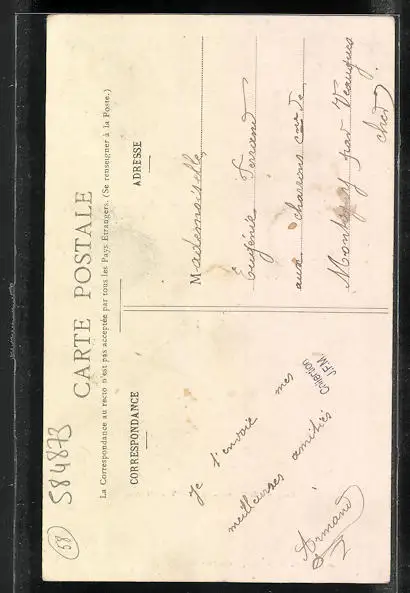 CARTE POSTALE
La Correspondance au recto n'est pas acceptée par tous les Pays Etrangers. (Se renseigner à la Poste.)
CORRESPONDANCE
ADRESSE
584873
58
Je t'envoie mes
meilleures amitiés
Armand
Collection
J.F.M.
Mademoiselle
Eugénie Ferrand
aux charrons
Montigny par Veaugues
Cher